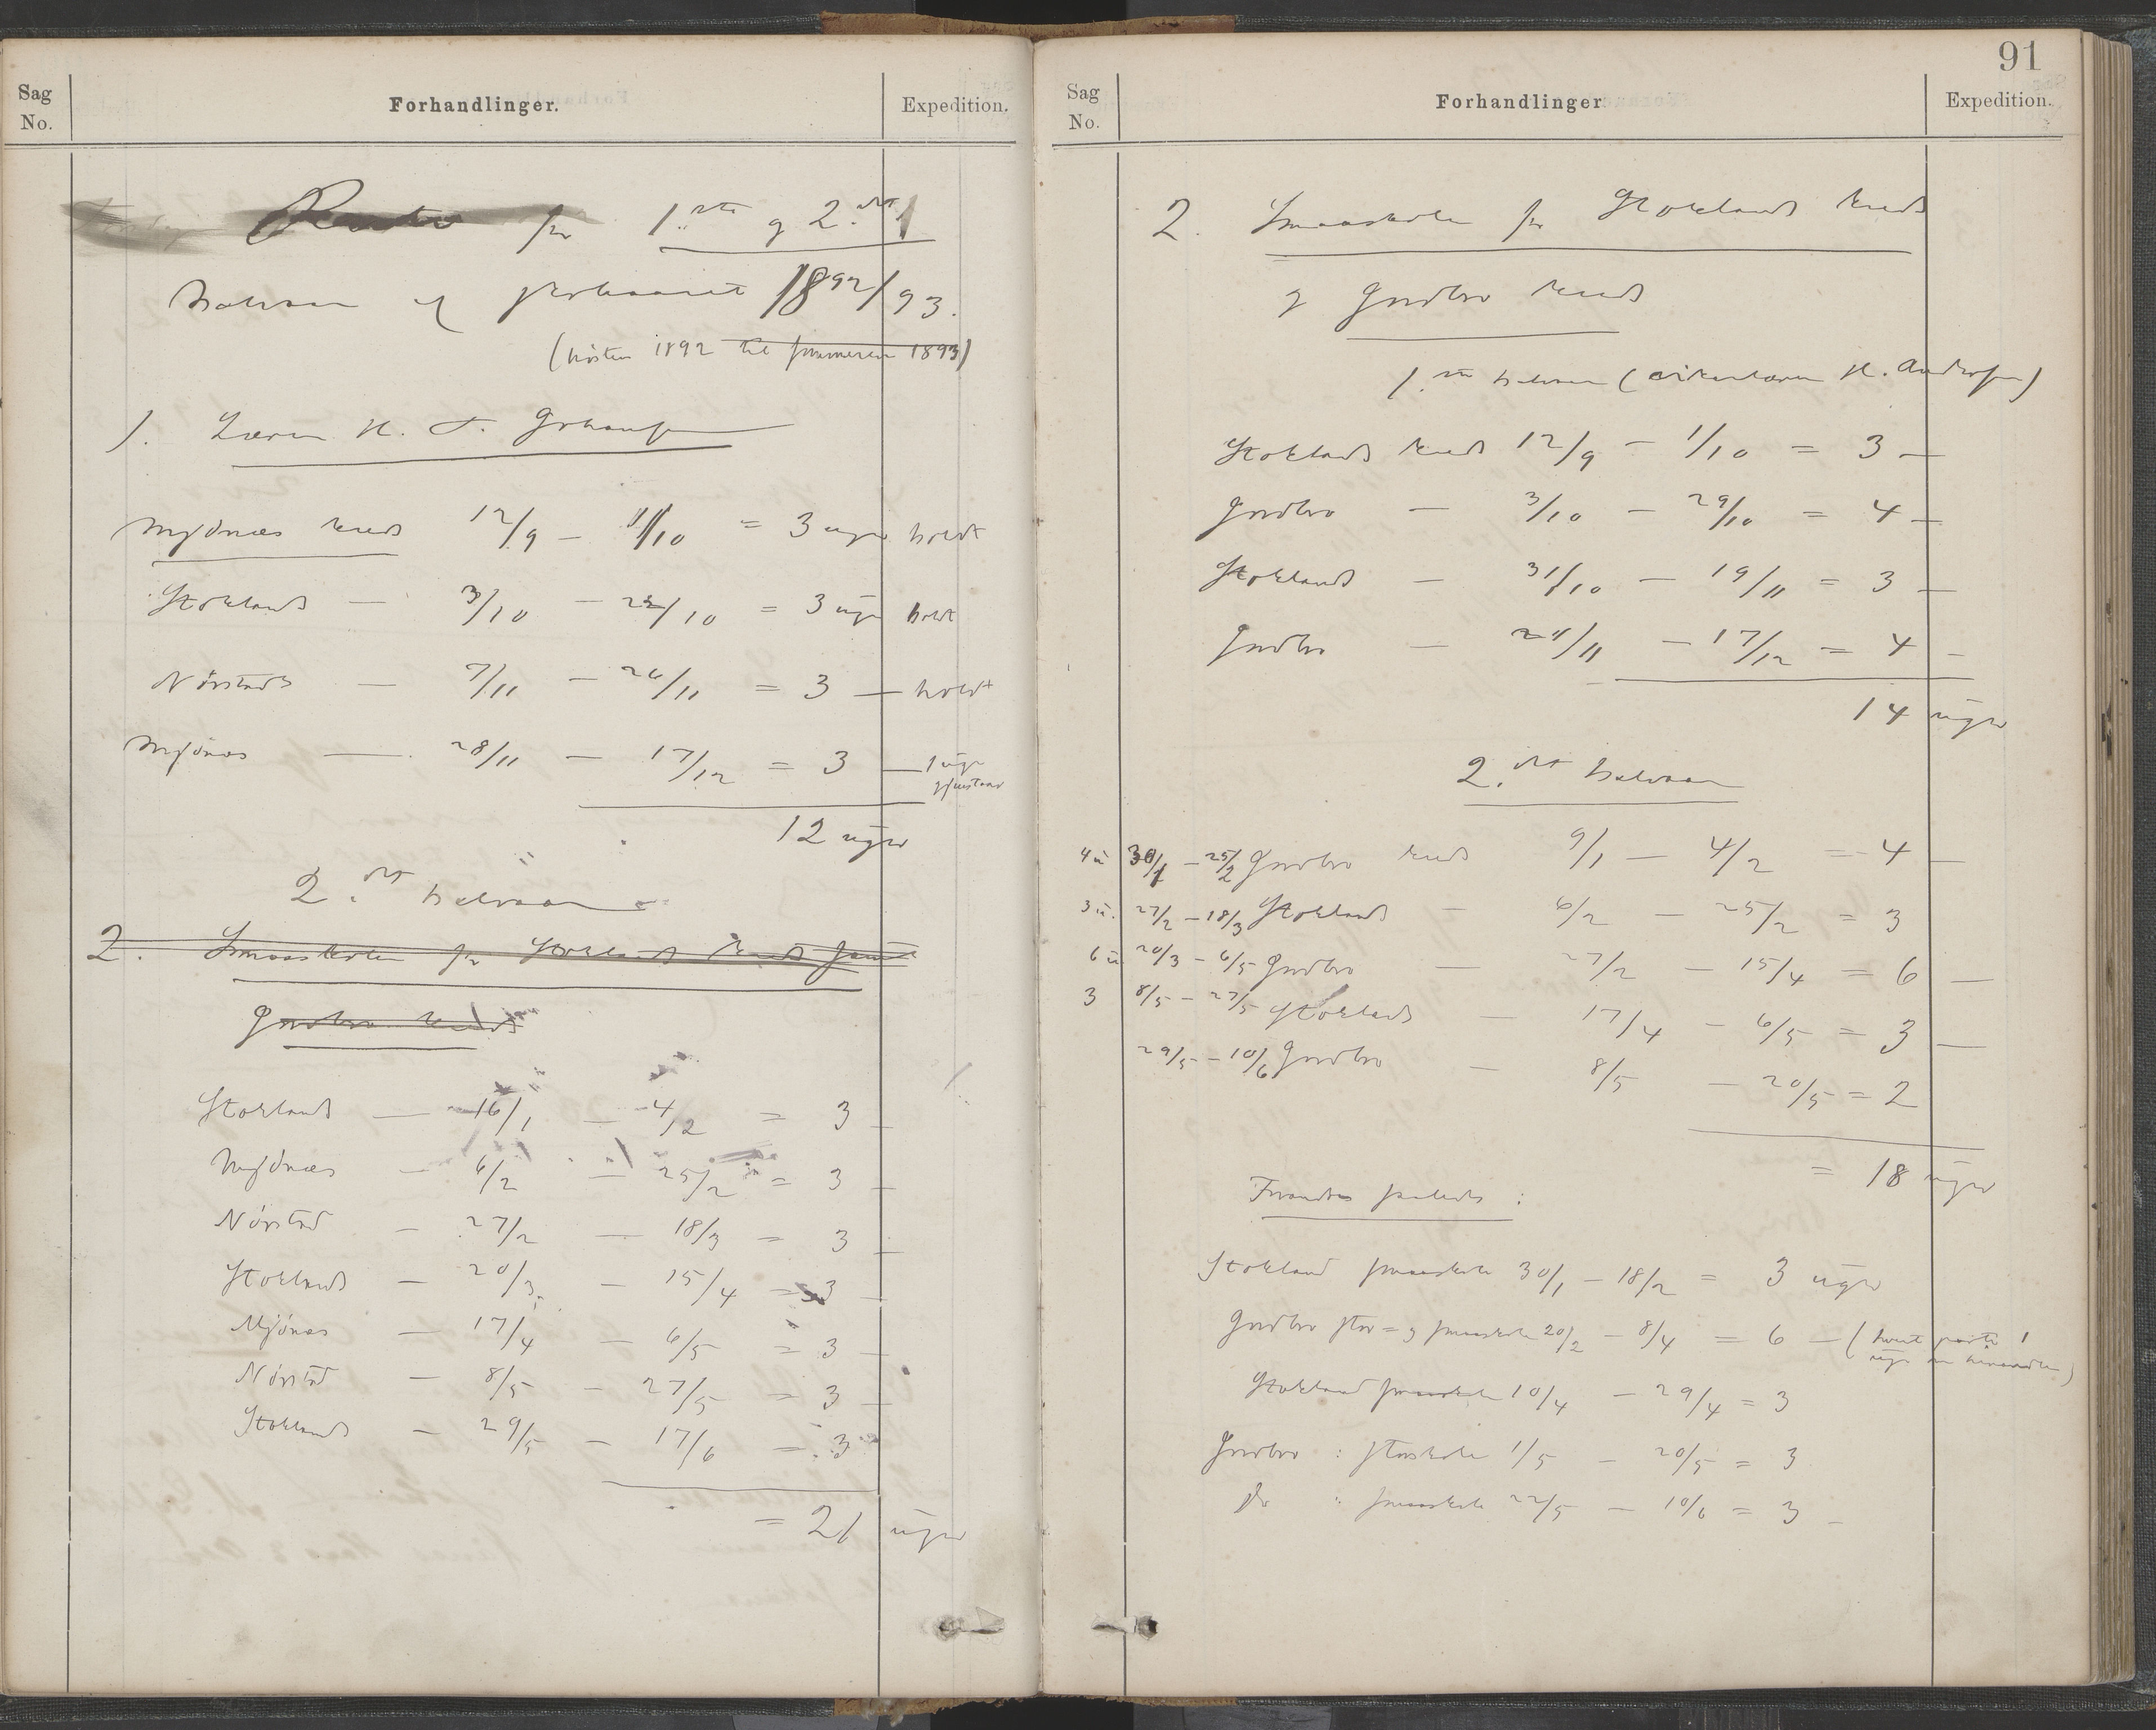 Sag
No.
Forhandlinger.
Expedition.
Route for 1.ste og 2.det
halvaar af skoleaaret 1892/93.
(høsten 1892 til sommeren 1893)
1. Lærer H. J. Johansen
Mjönæs kreds 12/9 – 1/10 = 3 uger holdt
Stoklands — 3/10 – 22/10 = 3 uger holdt
Nörstads — 7/11 – 26/11 = 3 — holdt
Mjönæs — 28/11 – 17/12 = 3 — 1 uge gjenstaar
12 uger
2.det halvaar
2. Smaaskolen for Stoklands kreds samt
Gordbro kreds
Stoklands — 16/1 – 4/2 = 3 —
Mjönæs — 6/2 – 25/2 = 3 —
Nörstad — 27/2 – 18/3 = 3 —
Stoklands — 20/3 – 15/4 = 3 —
Mjönæs — 17/4 – 6/5 = 3 —
Nörstad — 8/5 – 27/5 = 3 —
Stoklands — 29/5 – 17/6 = 3
= 21 uger
91
Sag
No.
Forhandlinger
Expedition.
2. Smaaskolen for Stoklands kreds
og kreds
1.ste halvaar ( H. Andersen)
Stoklands kreds 12/9 – 1/10 = 3 —
— 3/10 – 29/10 = 4 —
Stoklands — 31/10 – 19/11 = 3 —
— 21/11 – 17/12 = 4 —
14 uger
2.det halvaar
4 u 30/1 – 25/2 kreds 9/1 – 4/2 = 4 —
3 u. 27/2 – 18/3 Stoklands — 6/2 – 25/2 = 3
6 u 20/3 – 6/5 — 27/2 – 15/4 = 6 —
3 8/5 – 27/5 Stoklands — 17/4 – 6/5 = 3 —
29/5 – 10/6 — 8/5 – 20/5 = 2
= 18 uger
Forandres saaledes :
Stokland smaaskole 30/1 – 18/2 = 3 uger
stor= og smaaskole 20/2 – 8/4 = 6 — (hvert parti 1 uge )
Stokland smaaskole 10/4 – 29/4 = 3
: storskole 1/5 – 20/5 = 3
do : smaaskole 22/5 – 10/6 = 3 —